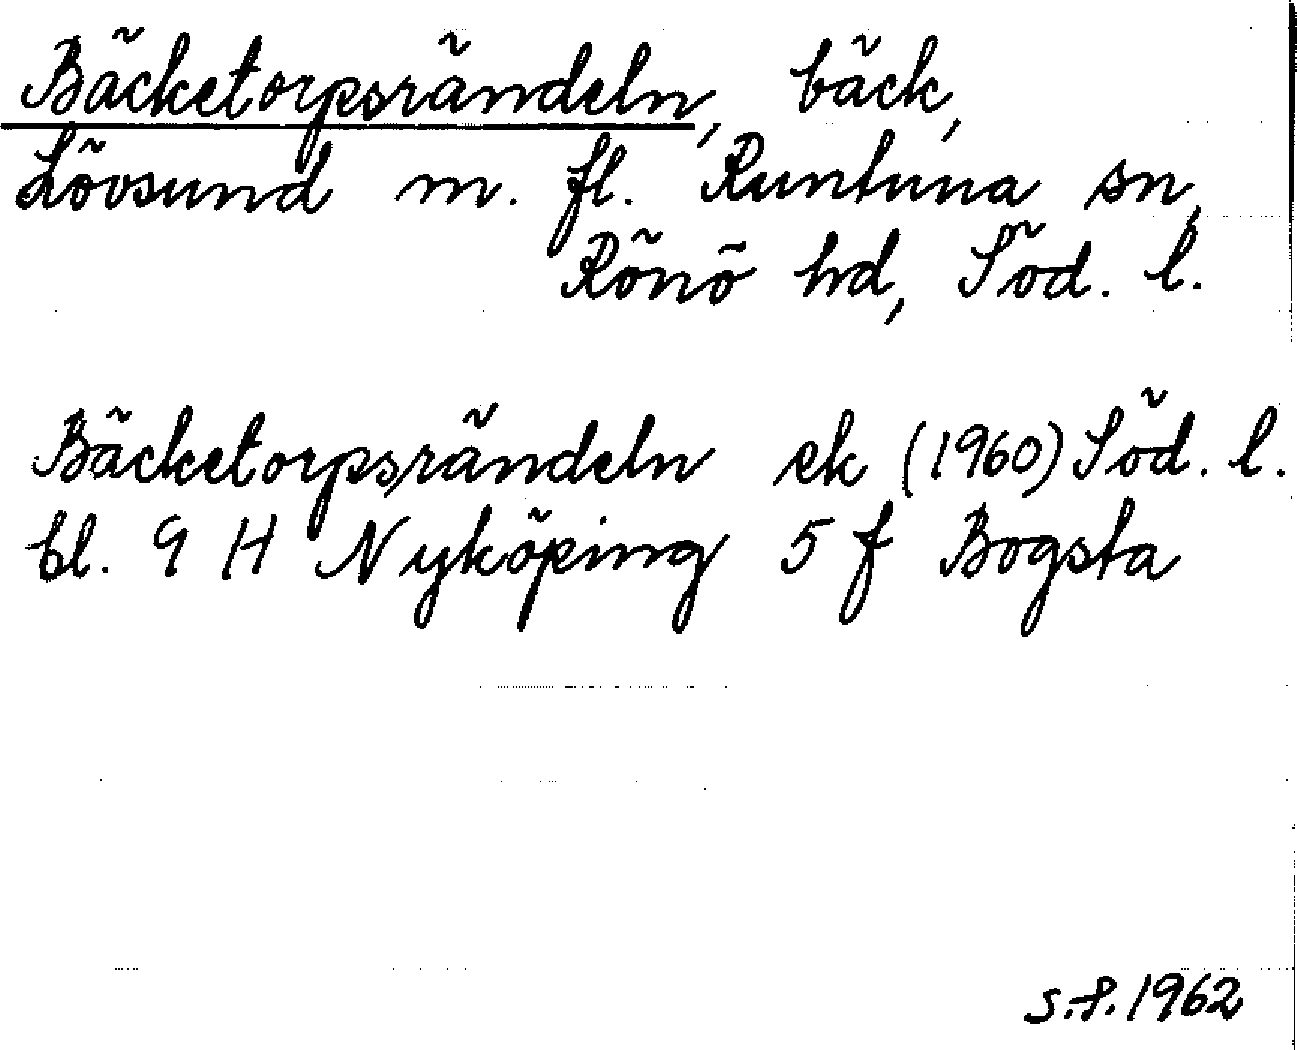 Bäcketorpsrändeln, bäck,
Lövsund m. fl. Runtuna sn,
Rönö hd, Söd. l.
Bäcketorpsrändeln ek (1960) Söd. l.
bl. 9 H Nyköping 5 f Bogsta
1962